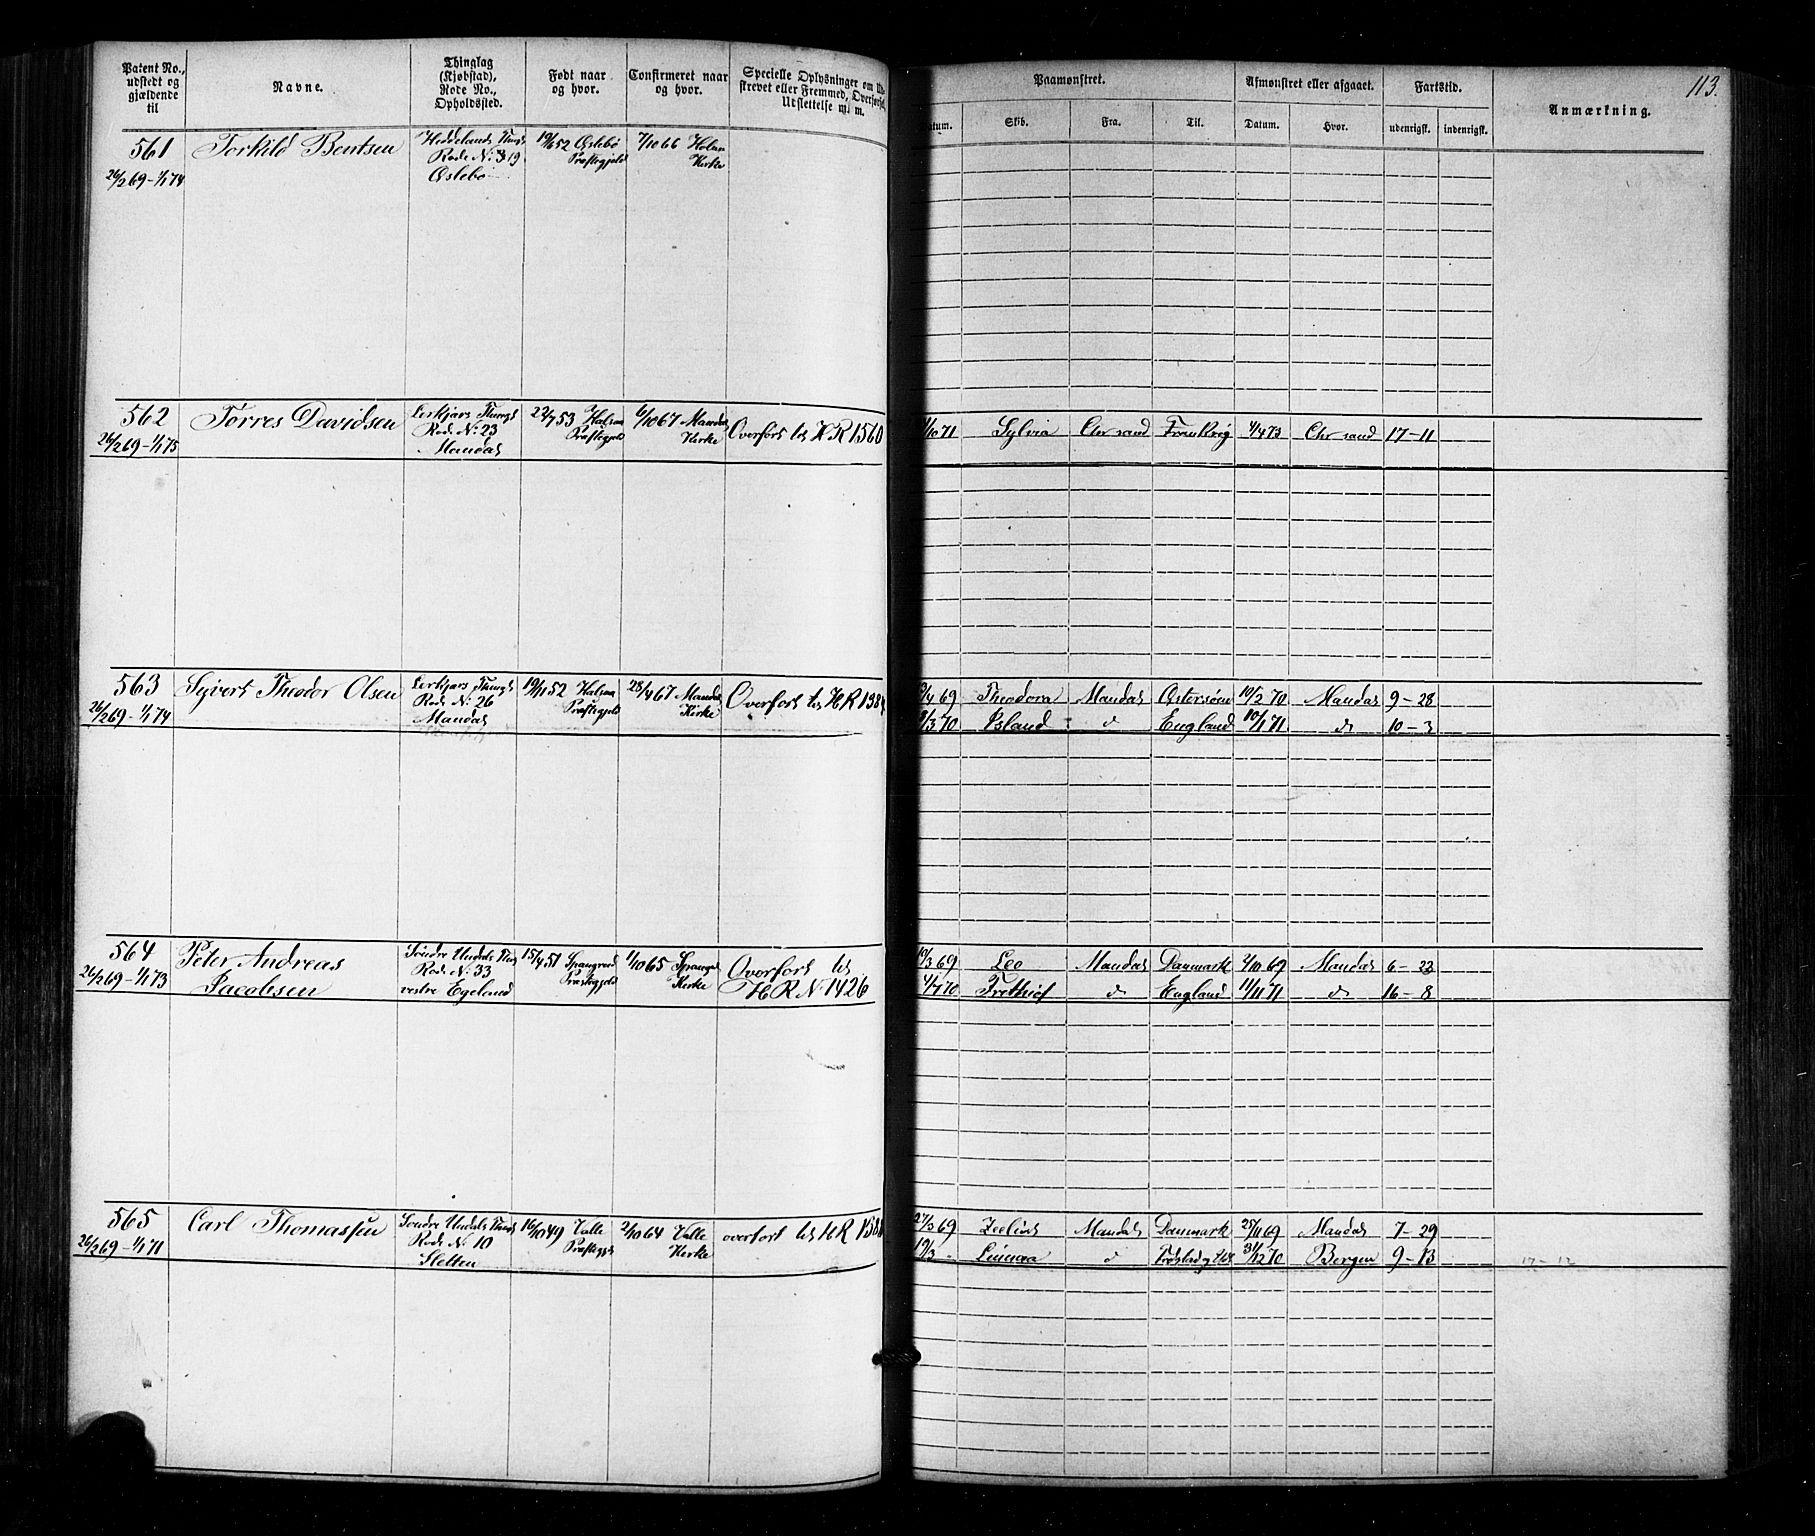 Patent No.,
udstedt og
gjældende
til
Navne.
Thinglag
(Kjøbstad),
Rode No.,
Opholdssted.
Født naar
og hvor.
Confirmeret naar
og hvor.
Specielle Oplysninger om
strevet eller Fremmed, Overførsel,
Udslettelse m. m.
Paamønstret.
Afmønstret eller afgaaet.
Fartstid.
Anmærkning.
113.
Skib.
Fra.
Til.
Datum.
Hvor.
udenrigsk.
indenrigsk.
561
26/2 69 - 1/1 74
Torkild Bentsen
Rode N: 319
Øslebø
19/6 52 Øslebø
Præstegjeld
7/10 66 Holum
Kirke
562
26/2 69 - 1/1 75
Tørres Davidsen
Rode N: 23
Mandal
22/7 53 Halsaa
Præstegjeld
6/10 67 Mandal
Kirke
Overført til H R 1560
/10 71 Sylvia Chrsand Frankrig 1/4 73 Chrsand 17 - 11
563
26/2 69 - 1/1 74
Syvert Theodor Olsen
Rode N: 26
Mandal
19/11 52 Halsaa
Præstegjeld
28/4 67 Mandal
Kirke
Overført til H R 138
/4 69 Theodora Mandal Østersøen 10/2 70 Mandal 9 - 28
/3 70 Island d England 10/1 71 d 10 - 3
564
26/2 69 - 1/1 73
Peter Andreas
Jacobsen
Søndre Undals Thing
Rode N: 33
vestre Egeland
15/4 51 Spangereid
Præstegjeld
1/10 65 Spange
Kirke
Overført til
H R N: 1426
19/3 69 Leo Mandal Danmark 2/10 69 Mandal 6 - 23
4/7 70 d England 11/11 71 d 16 - 8
565
26/2 69 - 1/1 71
Carl Thomassen
Søndre Undals Thing
Rode N: 10
Sletten
16/10 49 Valle
Præstegjeld
2/10 64 Valle
Kirke
overført til H R 138
27/3 69 Mandal Danmark 25/11 69 Mandal 7 - 29
19/3 - d 31/12 70 Bergen 9 - 13